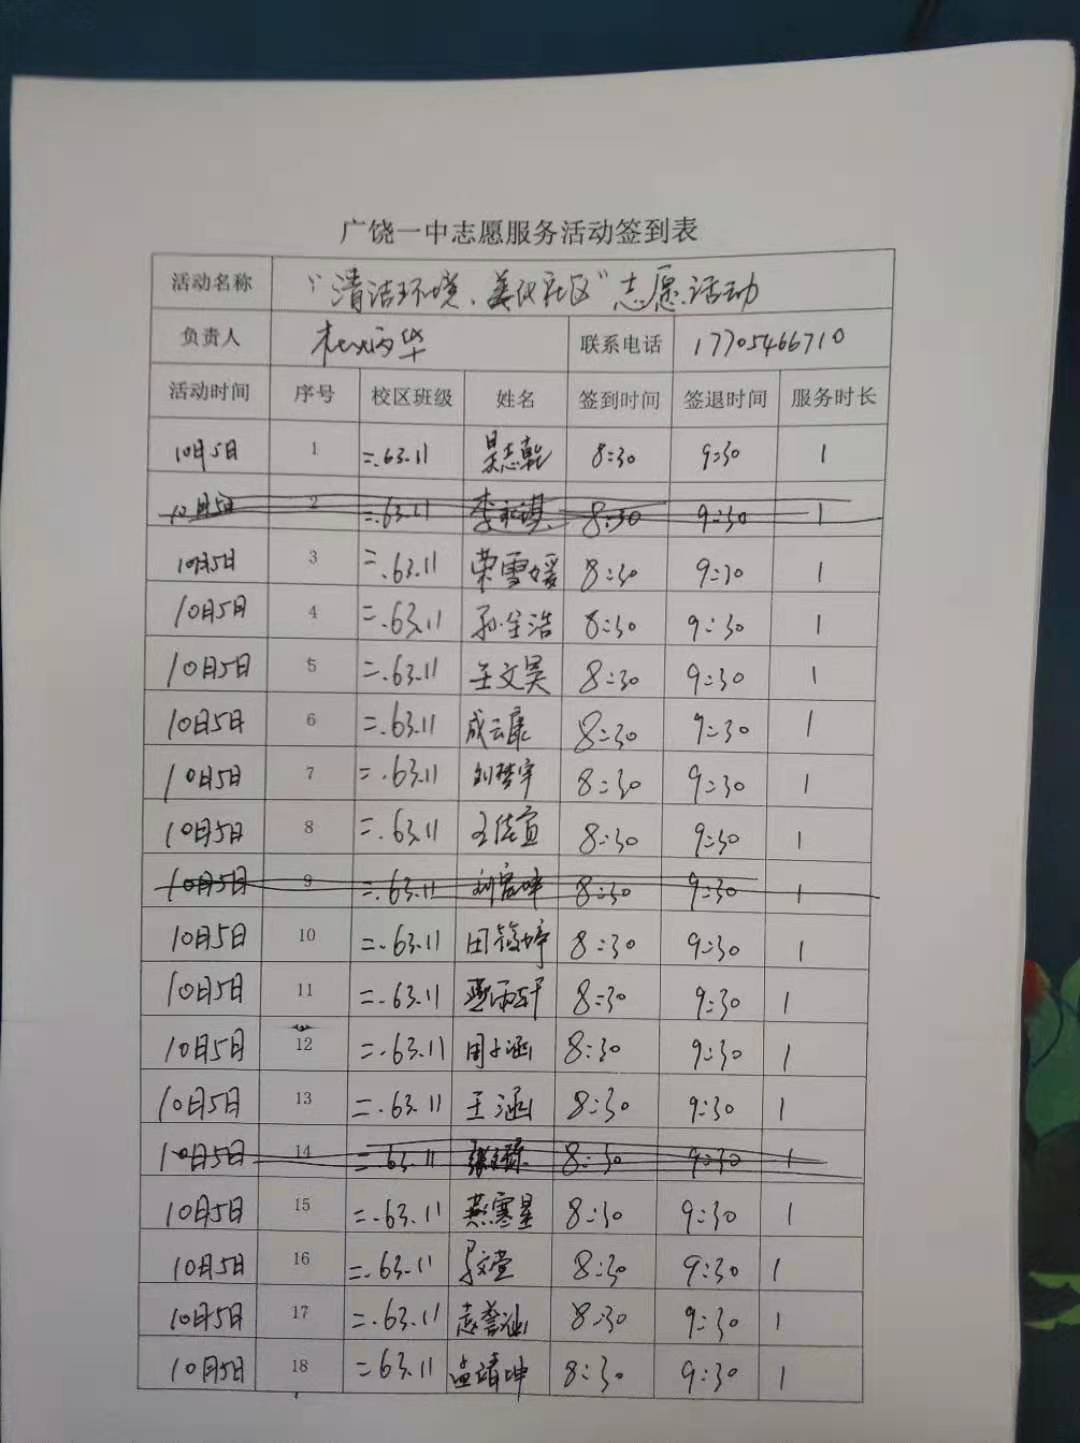 广饶一中志愿服务活动签到表
活动名称 "清洁环境、美化社区"志愿活动
负责人 联系电话 17705466710
活动时间 序号 校区班级 姓名 签到时间 签退时间 服务时长
10月5日 1 二.63.11 吴志乾 8:30 9:30 1
10月5日 2 二.63.11 8:30 9:30 1
10月5日 3 二.63.11 荣雪媛 8:30 9:30 1
10月5日 4 二.63.11 孙全浩 8:30 9:30 1
10月5日 5 二.63.11 王文昊 8:30 9:30 1
10月5日 6 二.63.11 成云康 8:30 9:30 1
10月5日 7 二.63.11 8:30 9:30 1
10月5日 8 二.63.11 王佳宜 8:30 9:30 1
10月5日 9 二.63.11 8:30 9:30 1
10月5日 10 二.63.11 田筱婷 8:30 9:30 1
10月5日 11 二.63.11 燕雨轩 8:30 9:30 1
10月5日 12 二.63.11 周子涵 8:30 9:30 1
10月5日 13 二.63.11 王涵 8:30 9:30 1
10月5日 14 二.63.11 8:30 9:30 1
10月5日 15 二.63.11 燕寒星 8:30 9:30 1
10月5日 16 二.63.11 8:30 9:30 1
10月5日 17 二.63.11 8:30 9:30 1
10月5日 18 二.63.11 孟靖坤 8:30 9:30 1